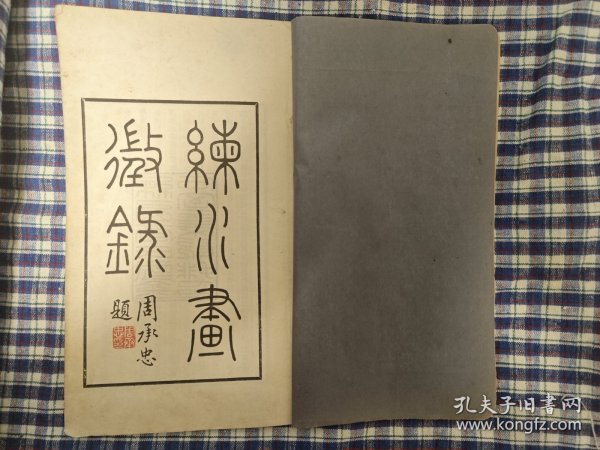 練水畫
徵錄
周承忠
題
孔夫子旧书网
www.kongfz.com